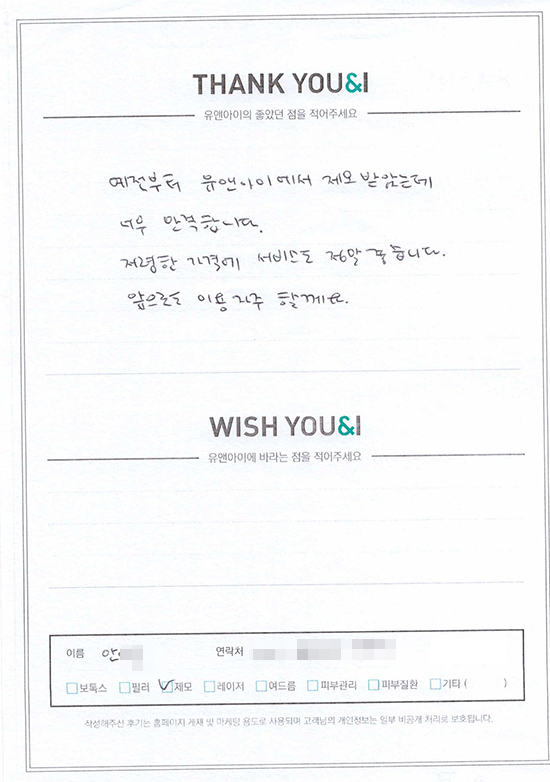 THANK YOU&I
유앤아이의 좋았던 점을 적어주세요
예전부터 유앤아이에서 제모 받았는데
너무 만족합니다.
저렴한 가격에 서비스도 정말 좋습니다.
앞으로도 이용자주 할께요.
WISH YOU&I
유앤아이에 바라는 점을 적어주세요
이름 안 연락처
보톡스 필러 제모 레이저 여드름 피부관리 피부질환 기타 ( )
작성해주신 후기는 홈페이지 게재 및 마케팅 용도로 사용되며 고객님의 개인정보는 일부 비공개 처리로 보호됩니다.